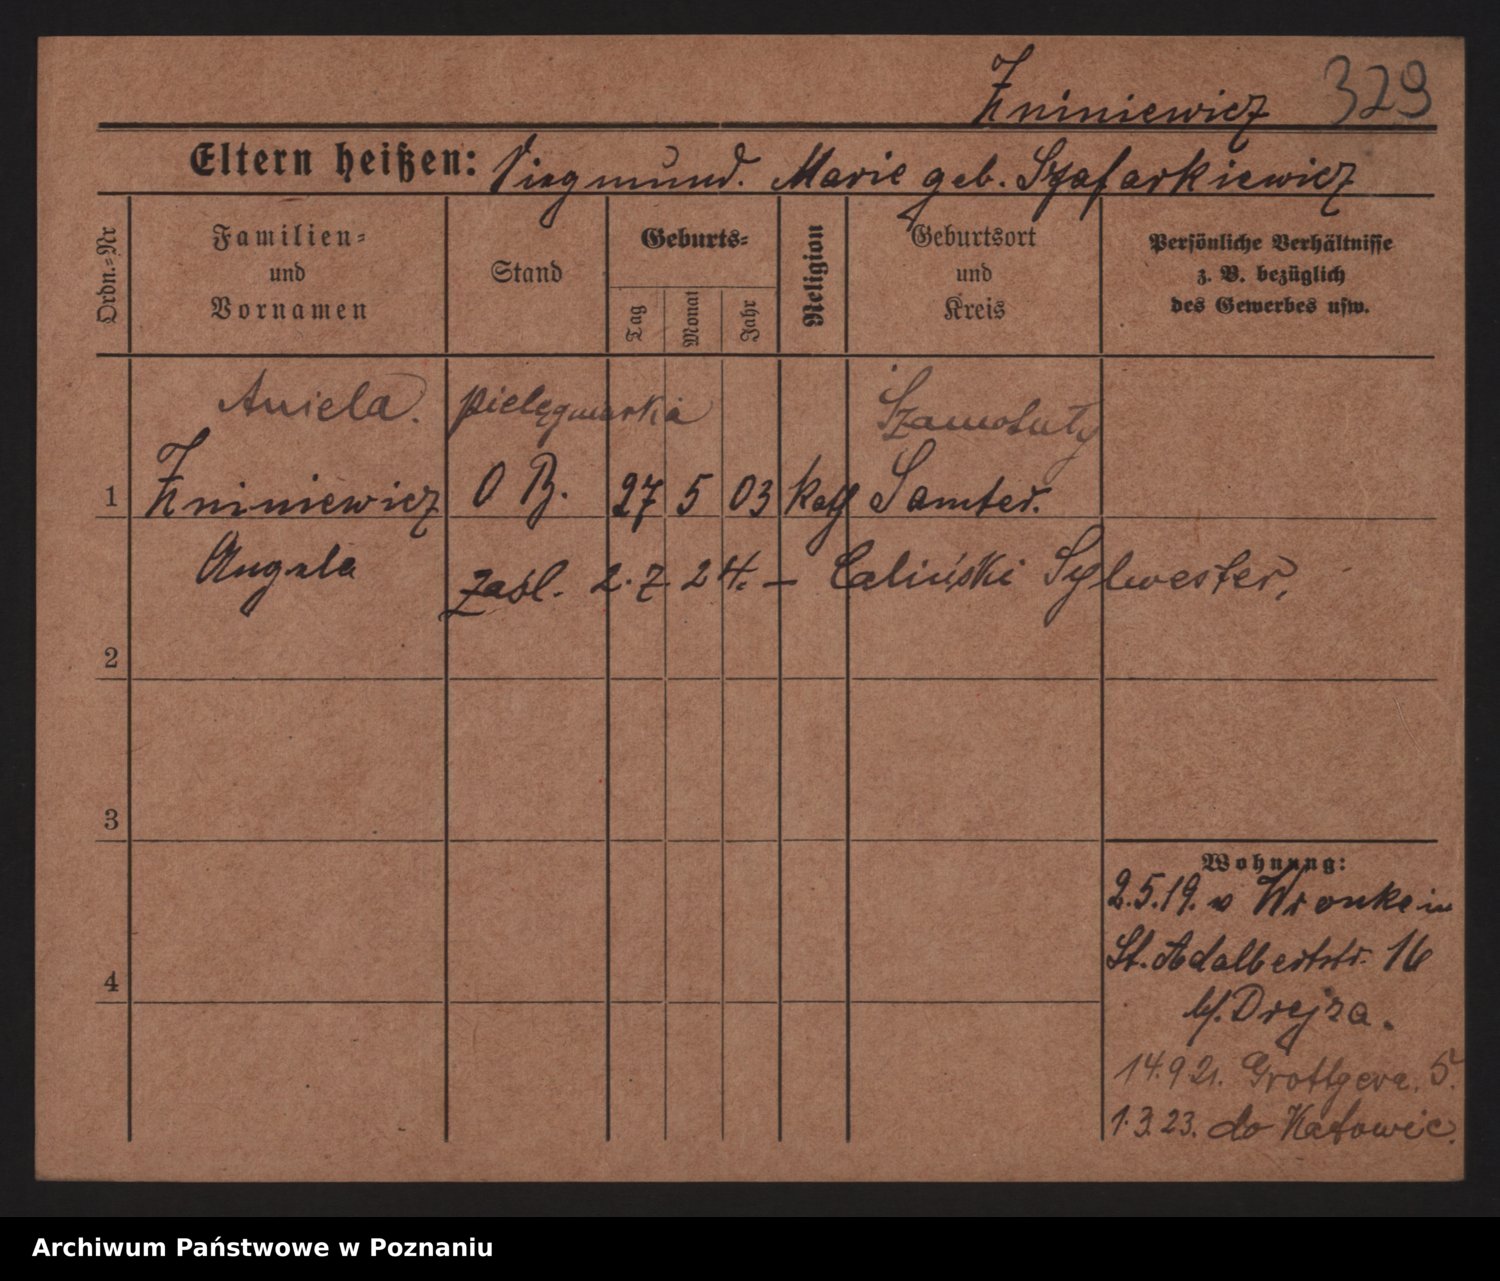 Żniniewicz 329
Eltern heißen: Siegmund. Marie geb. Szafarkiewicz
Ordn.-Nr
Familien- und Vornamen
Stand
Geburts-
Tag
Monat
Jahr
Religion
Geburtsort und Kreis
Persönliche Verhältnisse z. B. bezüglich des Gewerbes usw.
Aniela. pielęgniarka Szamotuły
1 Żniniewicz O B. 27 5 03 kath Samter.
Angela zaśl. 2.7 24. — Caliński Sylwester,
2
3
4
Wohnung:
2.5.19. v Wronke in
St. Adalbertstr. 16
b/. Drejza.
14.9 21. Grottgera. 5.
1.3.23. do Katowic.
Archiwum Państwowe w Poznaniu